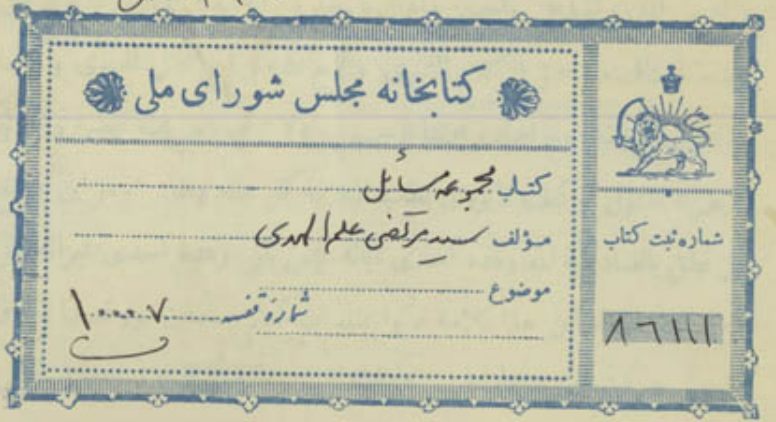 کتابخانه مجلس شورای ملی
کتاب مجموعه مسائل
مؤلف سید مرتضی علم الهدی
موضوع
شماره قفسه ۱۰۰۰۷
شماره ثبت کتاب
۸۶۱۱۱